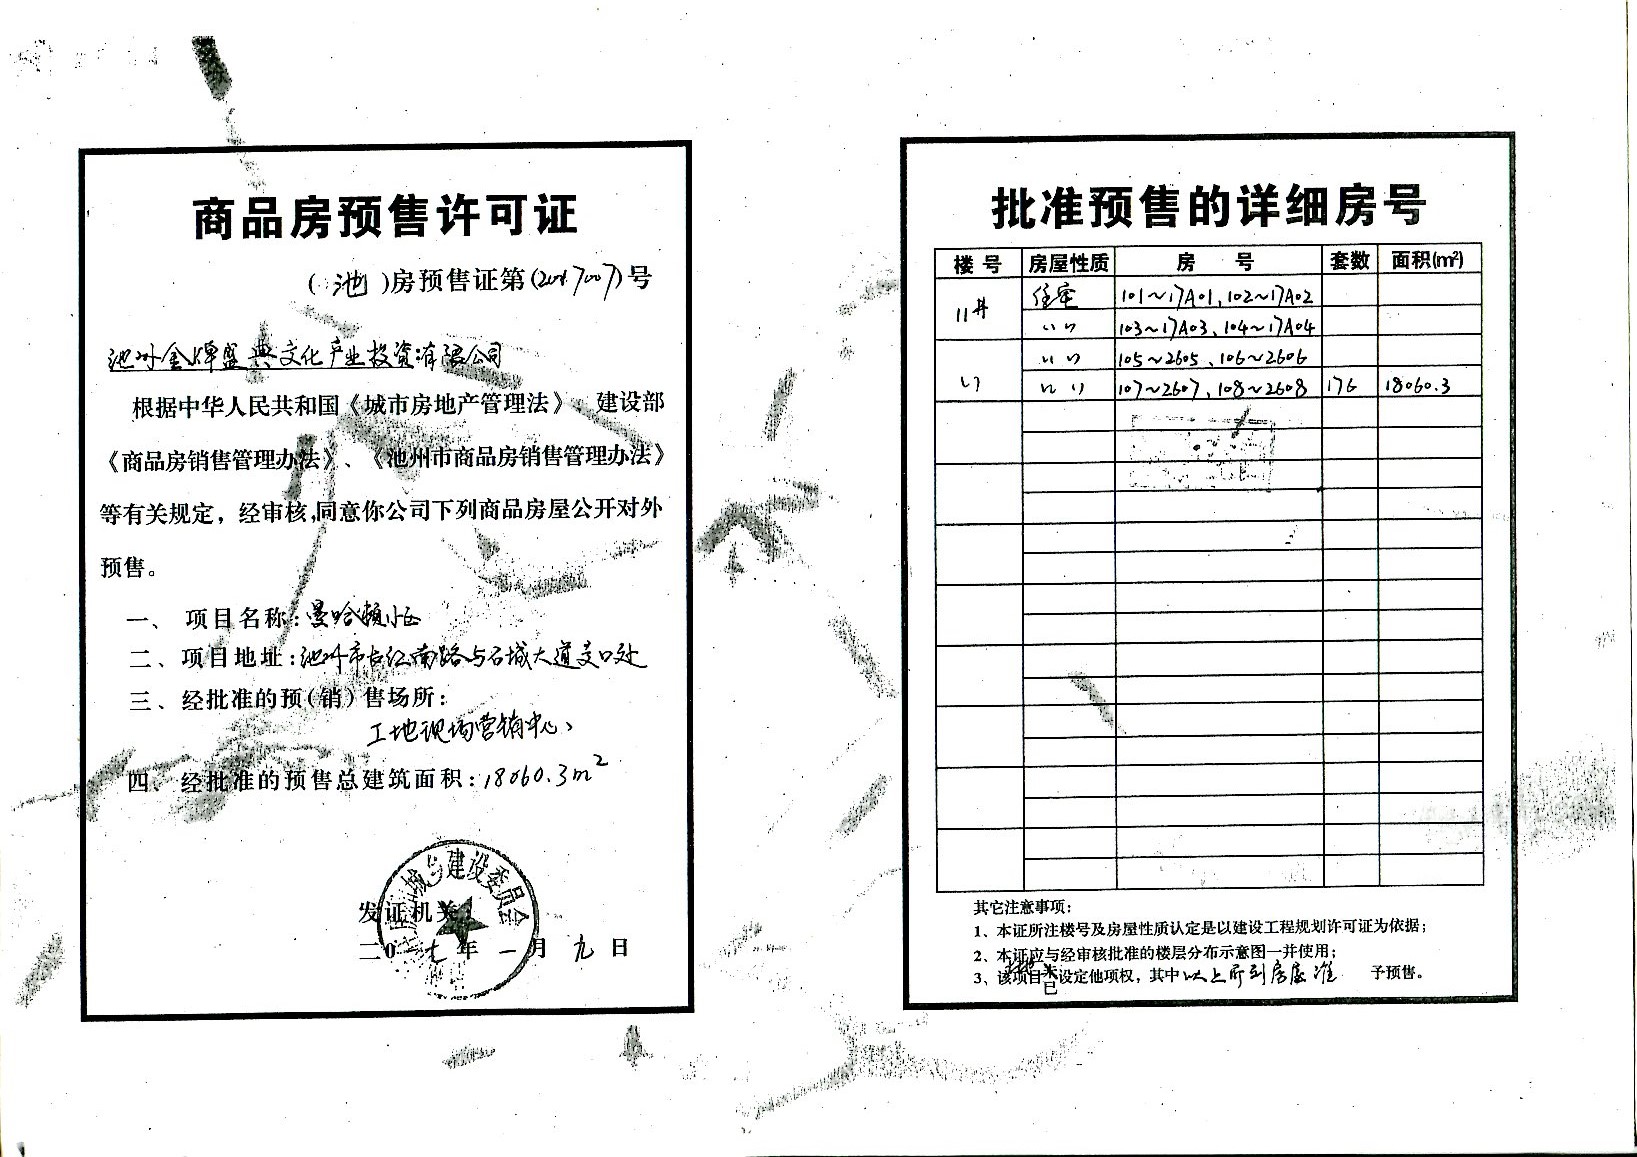 商品房预售许可证
(池)房预售证第(2017007)号
池州金牌盛典文化产业投资有限公司
根据中华人民共和国《城市房地产管理法》、建设部
《商品房销售管理办法》、《池州市商品房销售管理办法》
等有关规定，经审核,同意你公司下列商品房屋公开对外
预售。
一、项目名称:曼哈顿小区
二、项目地址:池州市长江南路与石城大道交口处
三、经批准的预(销)售场所:
工地现场营销中心
四、经批准的预售总建筑面积:18060.3m²
城乡建设委员会
发证机关:
二0一七年一月九日
批准预售的详细房号
楼号 房屋性质 房号 套数 面积(m²)
11# 住宅 101~17A01,102~17A02
〃 103~17A03、104~17A04
〃 105~2605、106~2606
〃 〃 107~2607,108~2608 176 18060.3
其它注意事项:
1、本证所注楼号及房屋性质认定是以建设工程规划许可证为依据;
2、本证应与经审核批准的楼层分布示意图一并使用;
3、该项目未已设定他项权,其中以上所列房屋准予预售。